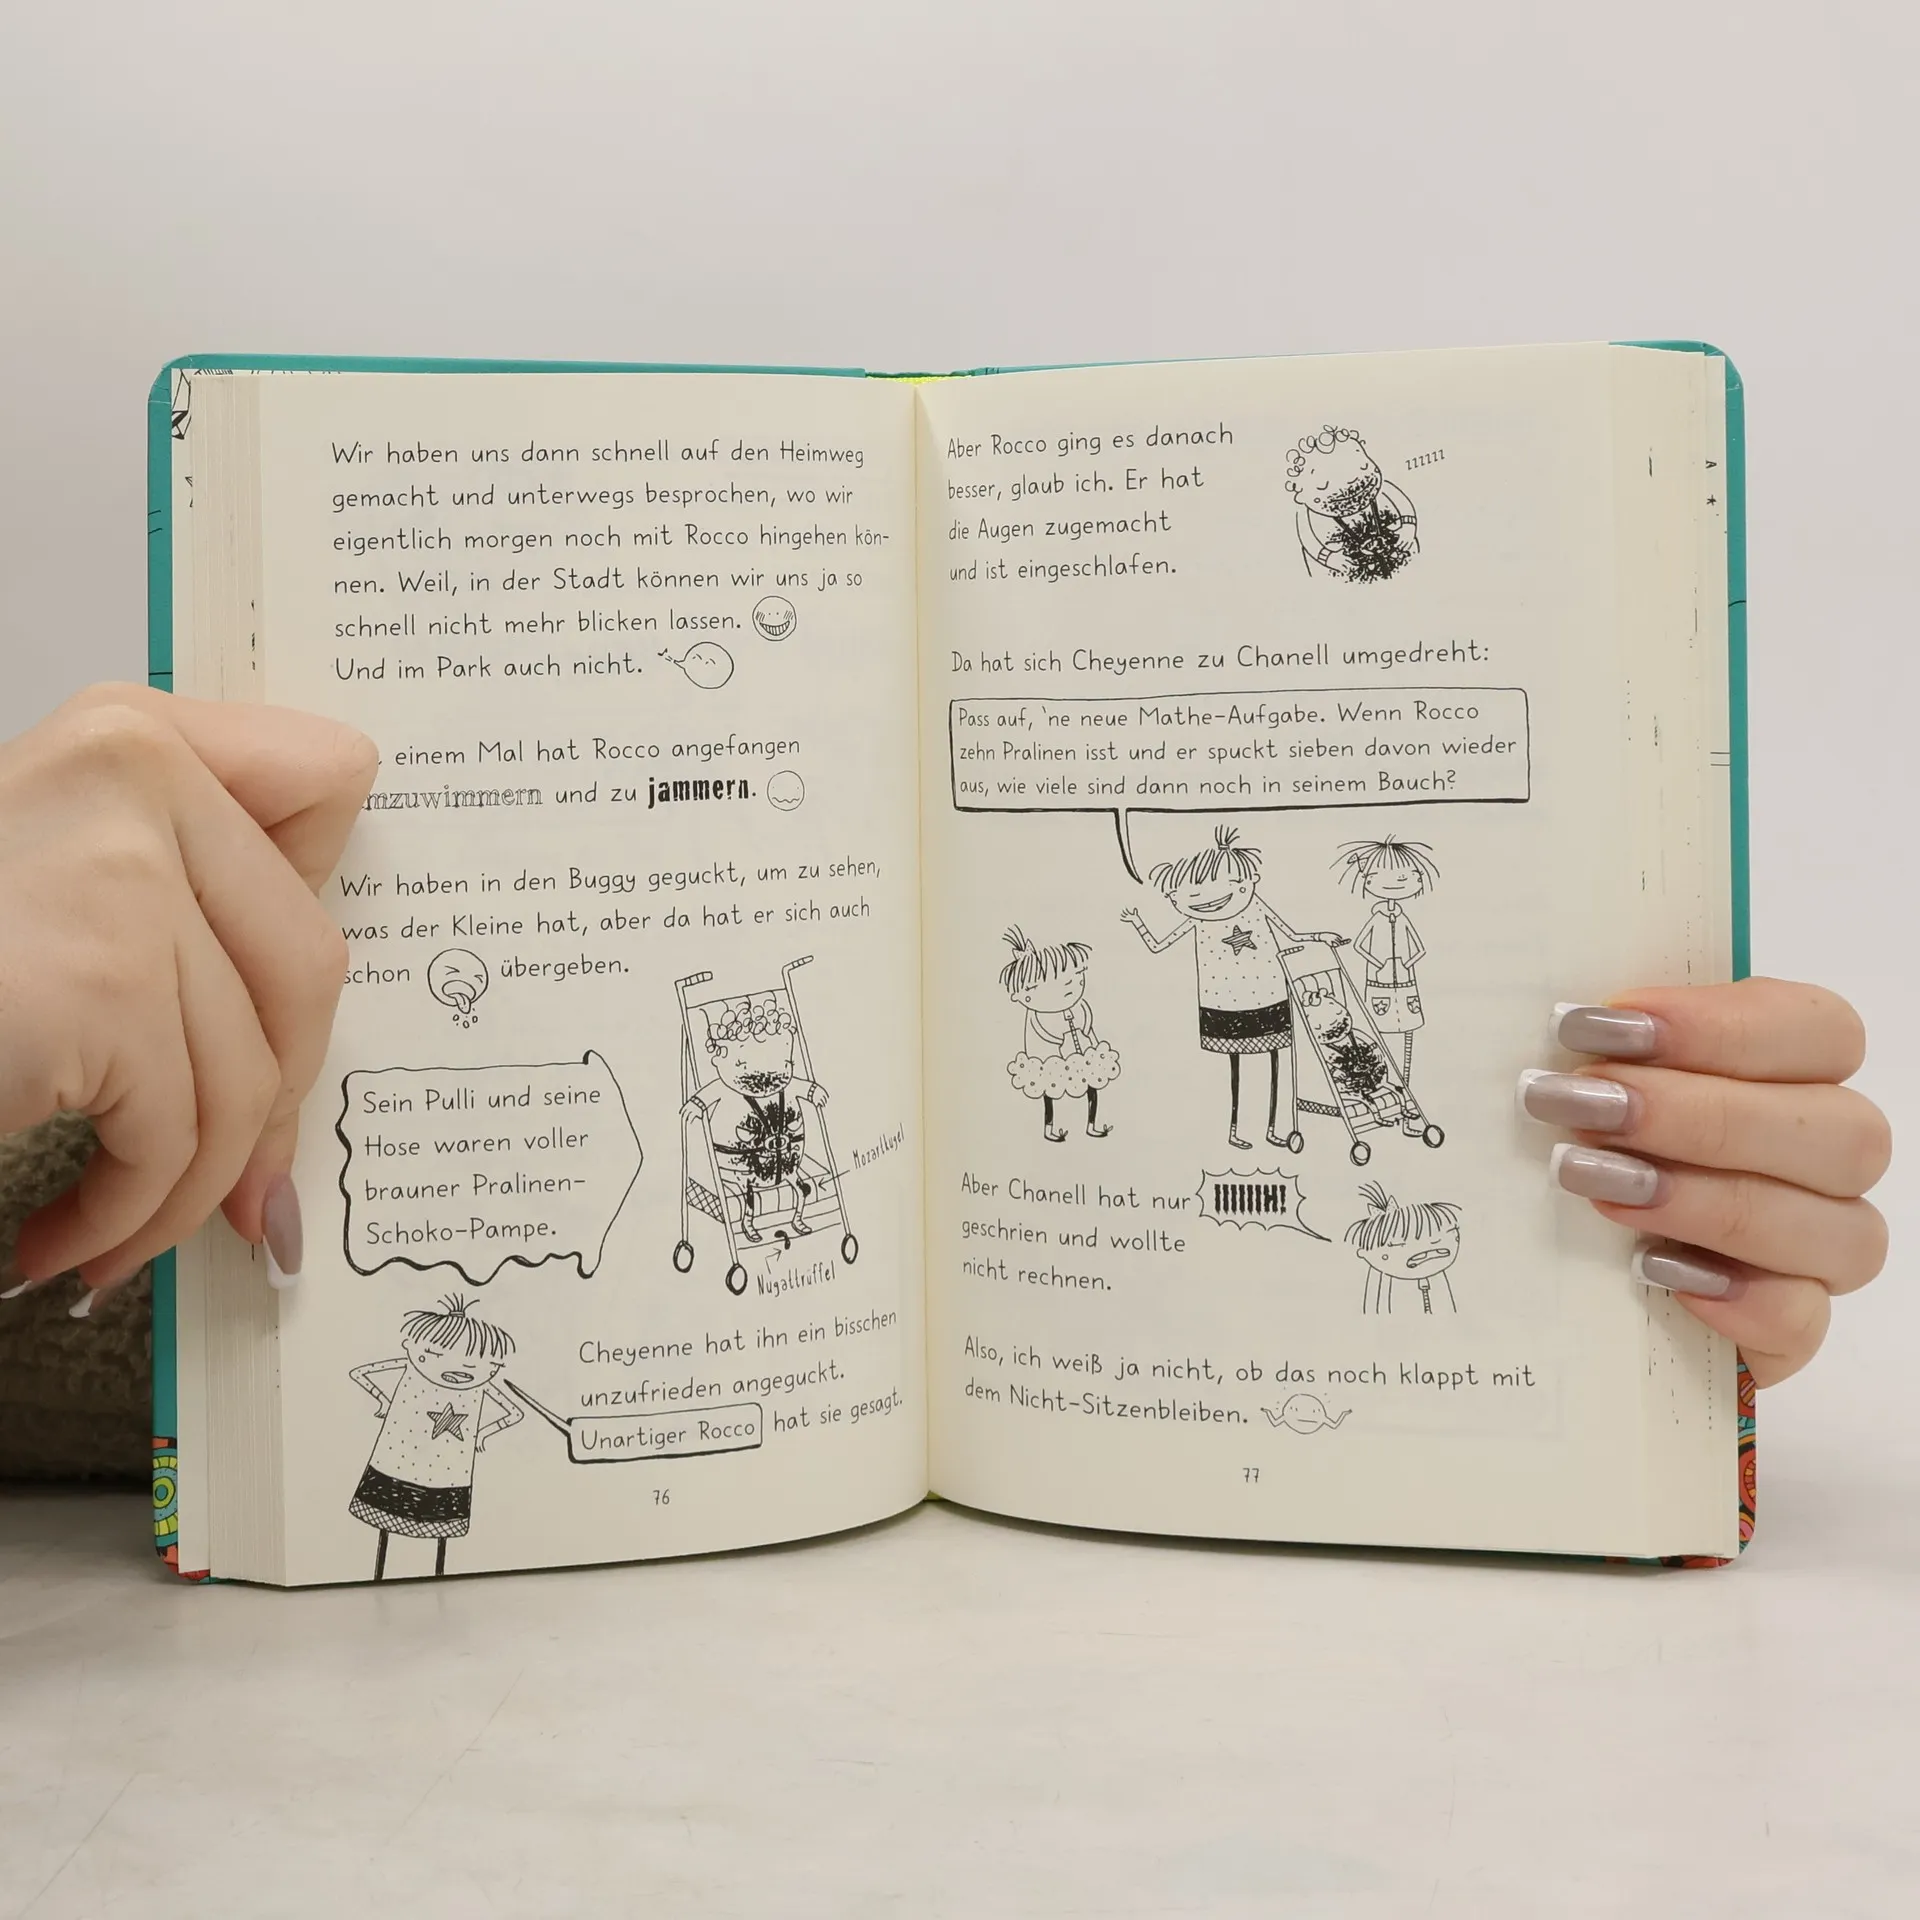 Wir haben uns dann schnell auf den Heimweg
gemacht und unterwegs besprochen, wo wir
eigentlich morgen noch mit Rocco hingehen kön-
nen. Weil, in der Stadt können wir uns ja so
schnell nicht mehr blicken lassen.
Und im Park auch nicht.
einem Mal hat Rocco angefangen
mzuwimmern und zu jammern.
Wir haben in den Buggy geguckt, um zu sehen,
was der Kleine hat, aber da hat er sich auch
schon übergeben.
Sein Pulli und seine
Hose waren voller
brauner Pralinen-
Schoko-Pampe.
Mozartkugel
Nugattrüffel
Cheyenne hat ihn ein bisschen
unzufrieden angeguckt.
Unartiger Rocco hat sie gesagt.
76
Aber Rocco ging es danach
besser, glaub ich. Er hat
die Augen zugemacht
und ist eingeschlafen.
zzzzzz
Da hat sich Cheyenne zu Chanell umgedreht:
Pass auf, 'ne neue Mathe-Aufgabe. Wenn Rocco
zehn Pralinen isst und er spuckt sieben davon wieder
aus, wie viele sind dann noch in seinem Bauch?
Aber Chanell hat nur IIIIIIH!
geschrien und wollte
nicht rechnen.
Also, ich weiß ja nicht, ob das noch klappt mit
dem Nicht-Sitzenbleiben.
77